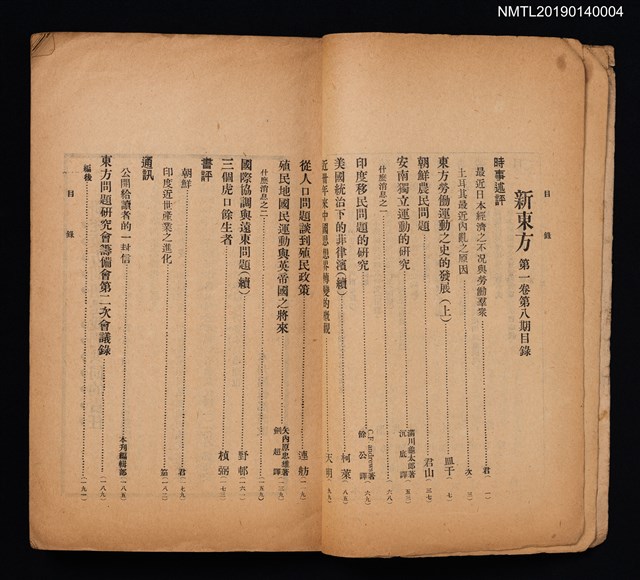 NMTL20190140004
目錄
新東方 第一卷第八期目錄
時事述評
最近日本經濟之不況與勞働羣衆……君（一）
土耳其最近內亂之原因……次（三）
東方勞働運動之史的發展（上）……（七）
朝鮮農民問題……君山（三七）
安南獨立運動的研究……滿川龜太郎著（五三）
什麼消息之一……（六八）
印度移民問題的研究……C.F. Andrews著 餘公譯（六九）
美國統治下的菲律濱（續）……柯萊（八五）
近世年來中國思想界轉變的概觀……天明（九九）
從人口問題談到殖民政策……連舫
殖民地國民運動與英帝國之將來……矢內原忠雄著 劍超譯（三九）
什麼消息之二……（一五九）
國際協調與遠東問題（續）……野邨（一六一）
三個虎口餘生者……楨弼（一七三）
書評
朝鮮……君（一七九）
印度近世產業之進化……第（一八二）
通訊
公開給讀者的一封信……本刊編輯部（一八五）
東方問題研究會籌備會第二次會議錄……（一八九）
編後……（一九一）
目錄